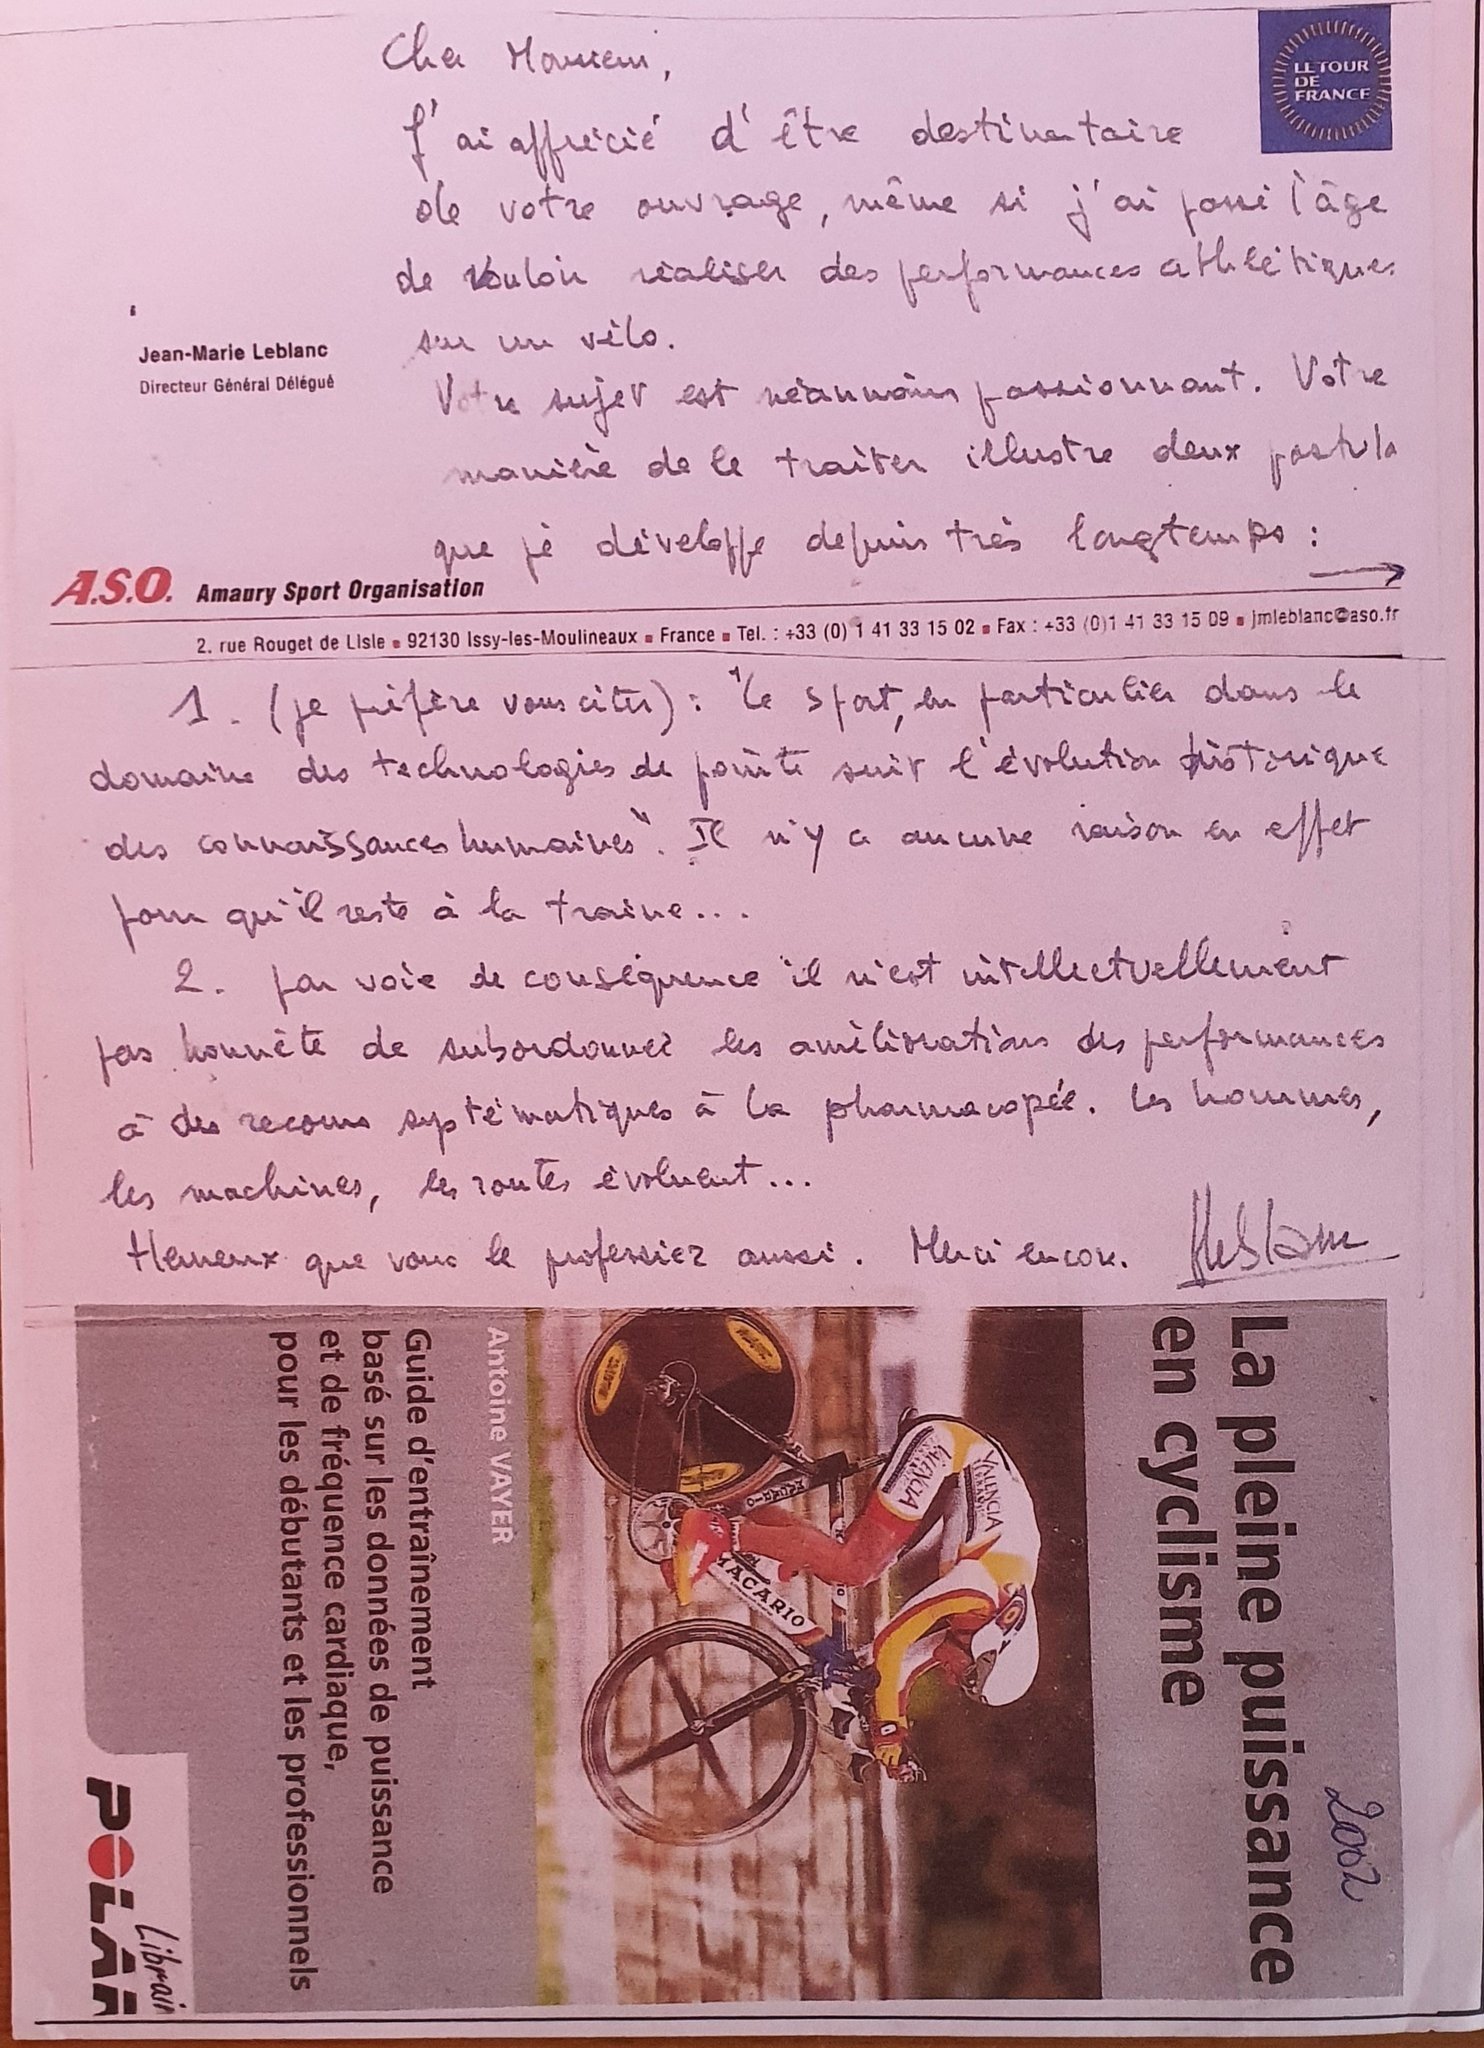 LE TOUR
DE
FRANCE
Cher Monsieur,
J'ai apprécié d'être destinataire
de votre ouvrage, même si j'ai passé l'âge
de vouloir réaliser des performances athlétiques
sur un vélo.
Votre sujet est néanmoins passionnant. Votre
manière de le traiter illustre deux postula
que je développe depuis très longtemps :
Jean-Marie Leblanc
Directeur Général Délégué
A.S.O. Amaury Sport Organisation
2. rue Rouget de Lisle ▪ 92130 Issy-les-Moulineaux ▪ France ▪ Tel. : +33 (0) 1 41 33 15 02 ▪ Fax : +33 (0)1 41 33 15 09 ▪ jmleblanc@aso.fr
1. (je préfère vous citer) : "Le sport, en particulier dans le
domaine des technologies de pointe suit l'évolution historique
des connaissances humaines". Il n'y a aucune raison en effet
pour qu'il reste à la traine...
2. par voie de conséquence il n'est intellectuellement
pas honnête de subordonner les améliorations des performances
à des recours systématiques à la pharmacopée. Les hommes,
les machines, les routes évoluent...
Heureux que vous le professiez aussi. Merci encore.
JMLeblanc
La pleine puissance
en cyclisme
2002
VALENCIA
VALENCIA
MACARIO
MACARIO
Antoine VAYER
Guide d'entraînement
basé sur les données de puissance
et de fréquence cardiaque,
pour les débutants et les professionnels
Librair
POLAR